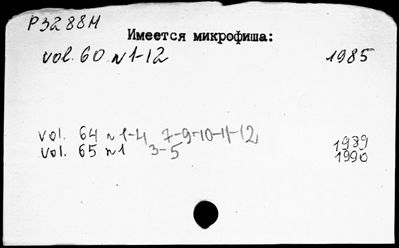 Р3288Н
Имеется микрофиша:
vol. 60 n1-12 1985
vol. 64 n1-4 7-9-10-11-12 1989
vol. 65 n1 3-5 1990